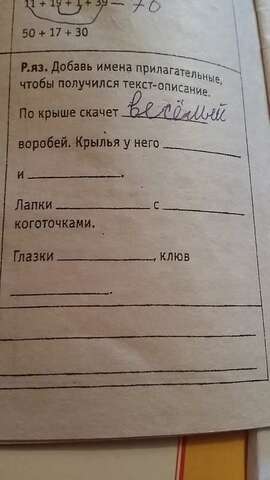 11 + 19 + 1 + 39 = 70
50 + 17 + 30
Р.яз. Добавь имена прилагательные,
чтобы получился текст-описание.
По крыше скачет весёлый
воробей. Крылья у него ___________
и ____________.
Лапки ____________ с ____________
коготочками.
Глазки ____________, клюв
____________.